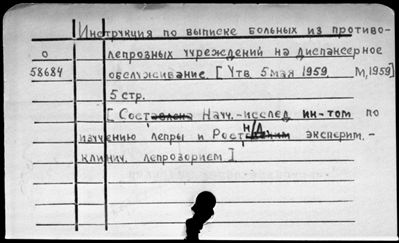 Инструкция по выписке больных из противо-
О лепрозных учреждений на диспансерное
58684 обслуживание. [Утв. 5 мая 1959. М, 1959]
5 стр.
[Составлено Науч.-исслед. ин-том по
изучению лепры и Рост н/Д эксперим.-
клинич. лепрозорием]